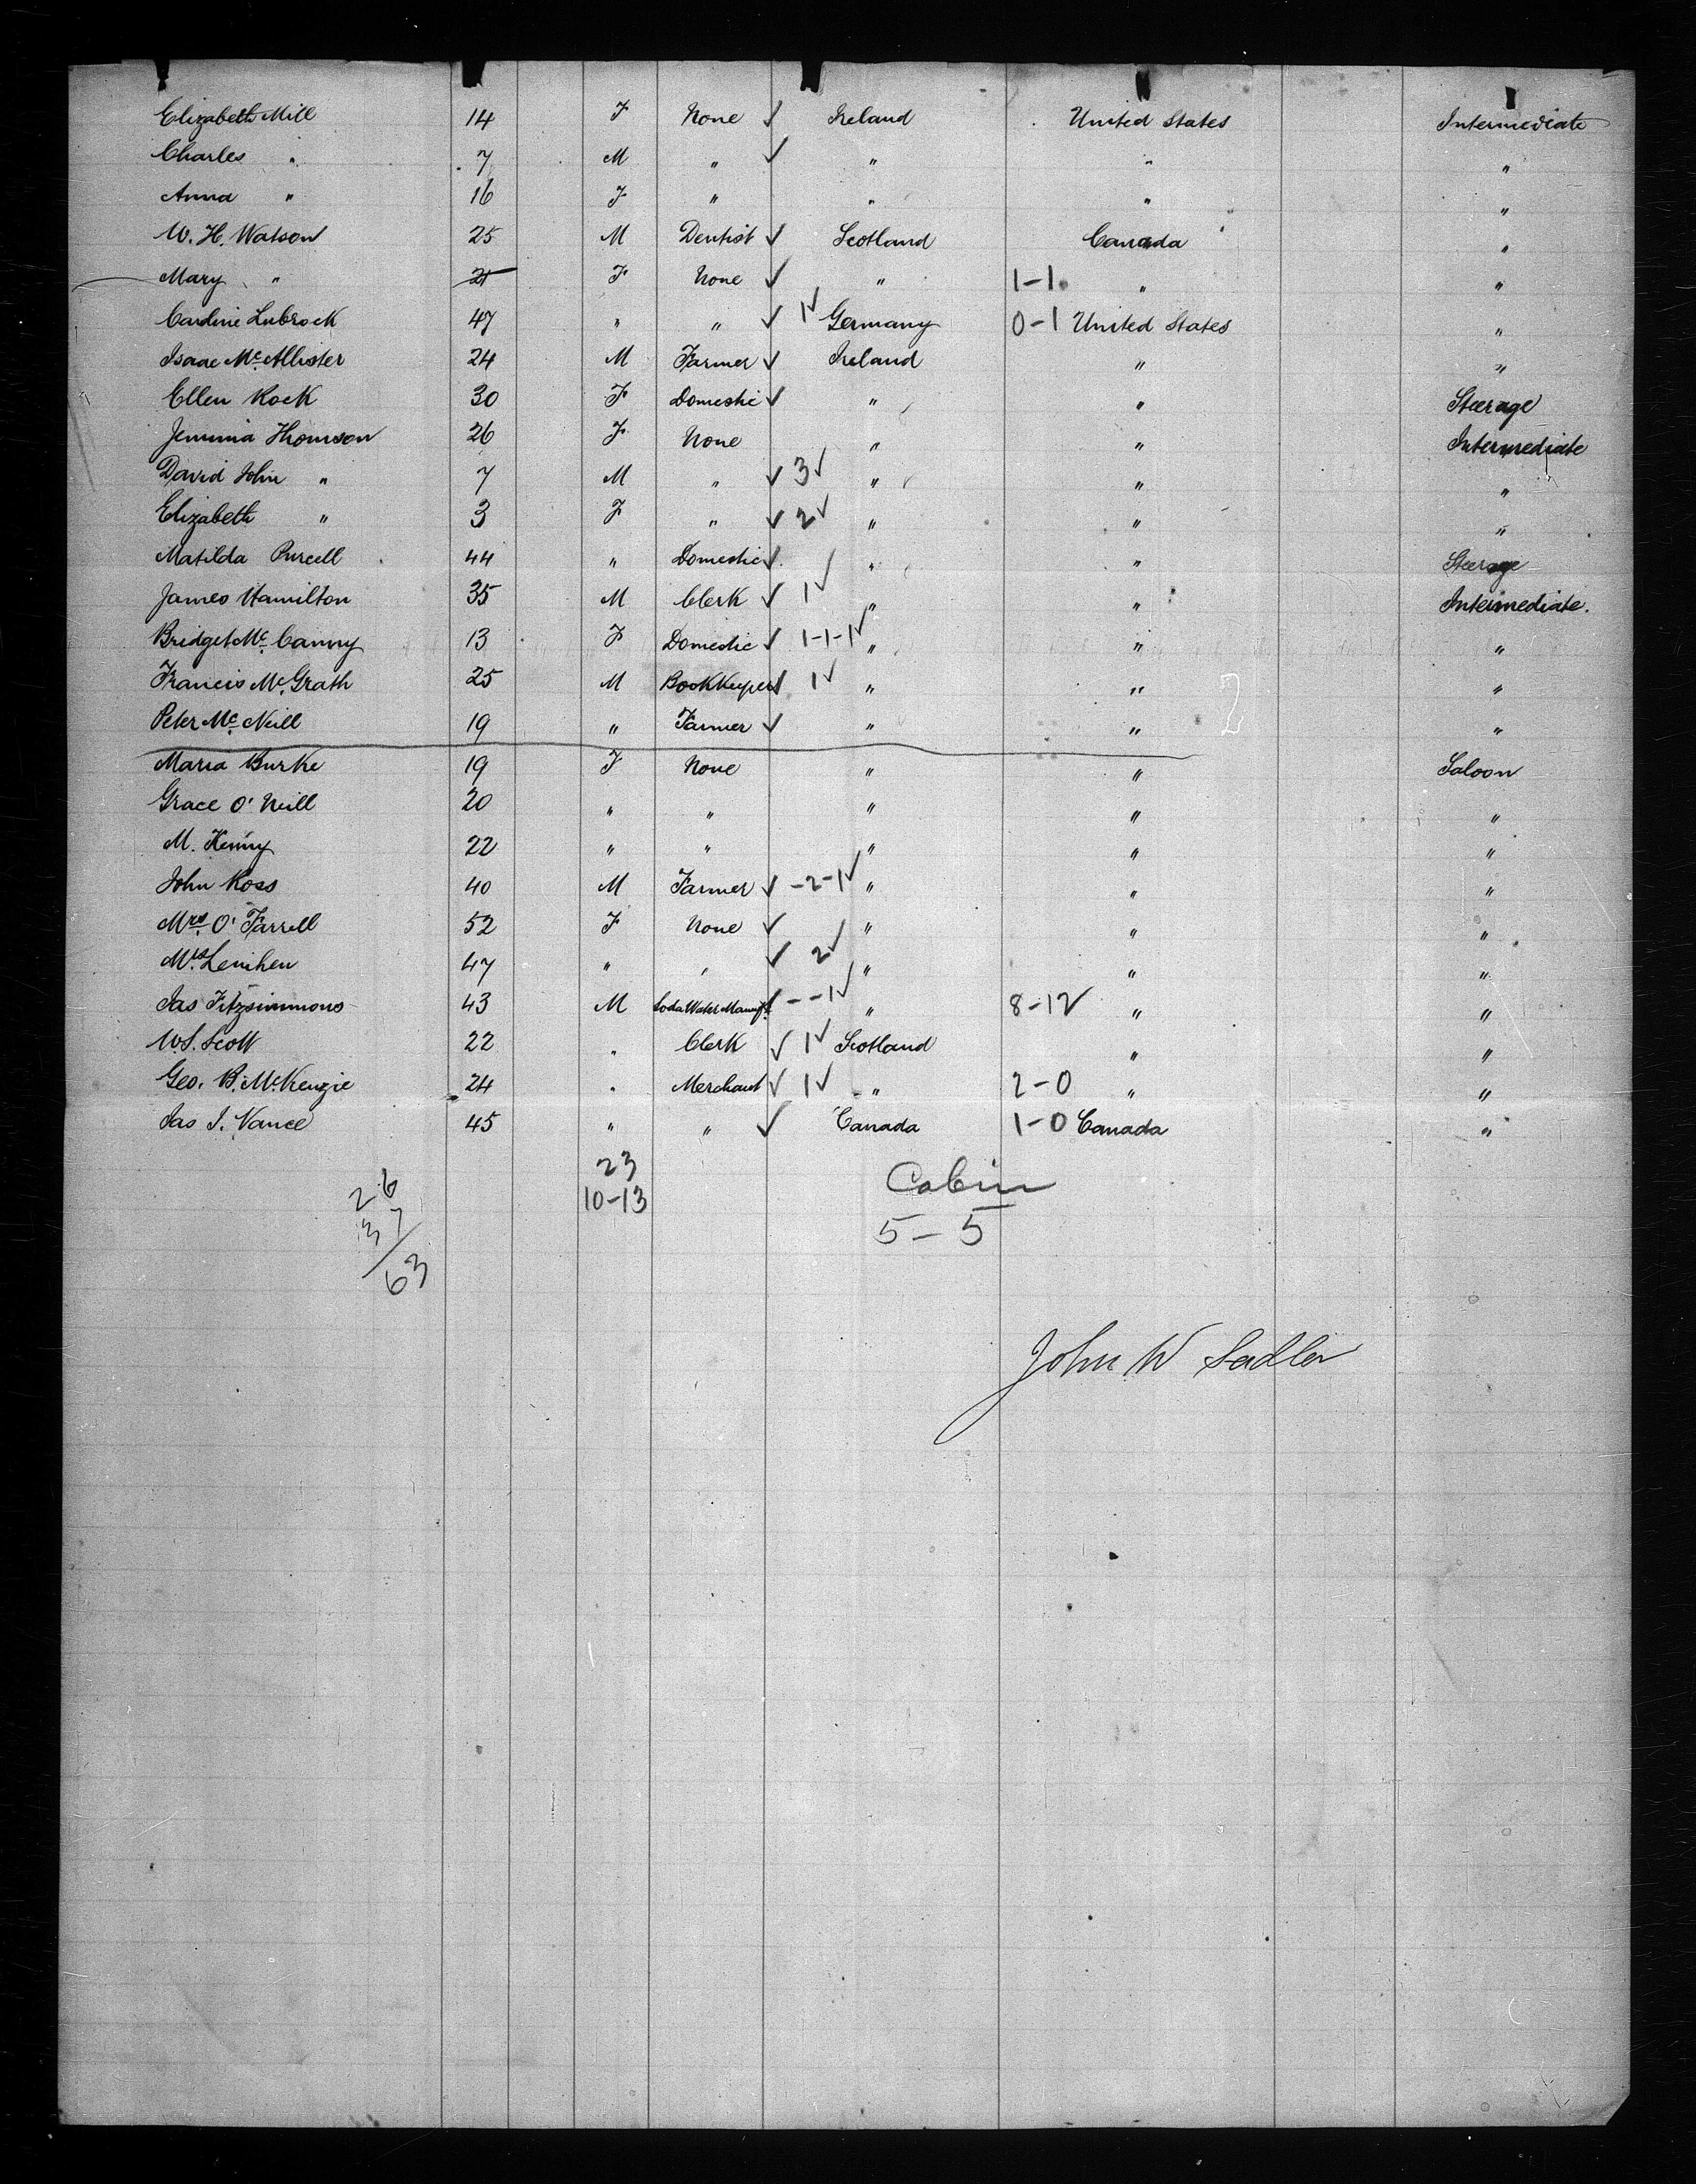 Elizabeth Mill 14 F None ✓ Ireland United States Intermediate
Charles " 7 M " ✓ " " "
Anna " 16 F " " " "
W. H. Watson 25 M Dentist ✓ Scotland Canada "
Mary " 21 F None ✓ " 1-1 " "
Caroline Lubrock 47 " " ✓ 1✓ Germany 0-1 United States "
Isaac McAllister 24 M Farmer ✓ Ireland " "
Ellen Rock 30 F Domestic ✓ " " Steerage
Jemima Thomson 26 F None " " Intermediate
David John " 7 M " ✓ 3✓ " " "
Elizabeth " 3 F " ✓ 2✓ " " "
Matilda Purcell 44 " Domestic ✓ " " Steerage
James Hamilton 35 M Clerk ✓ 1✓ " " Intermediate.
Bridget Mc Canny 13 F Domestic ✓ 1-1-1✓ " " "
Francis McGrath 25 M BookKeeper ✓ 1✓ " " "
Peter Mc Neill 19 " Farmer ✓ " " "
Maria Burke 19 F None " " Saloon
Grace O' Neill 20 " " " " "
M. Kenny 22 " " " " "
John Ross 40 M Farmer ✓ -2-1✓ " " "
Mrs. O' Farrell 52 F None ✓ " " "
Mrs. Lenihen 47 " " ✓ 2✓ " " "
Jas Fitzsimmons 43 M Soda Water Manuf. ✓ --1✓ " 8-12 " "
W.S. Scott 22 " Clerk ✓ 1✓ Scotland " "
Geo. B. McKenzie 24 " Merchant ✓ 1✓ " 2-0 " "
Jas J. Vance 45 " " ✓ Canada 1-0 Canada "
23
10-13
Cabin
5-5
26
37
63
John W Sadler